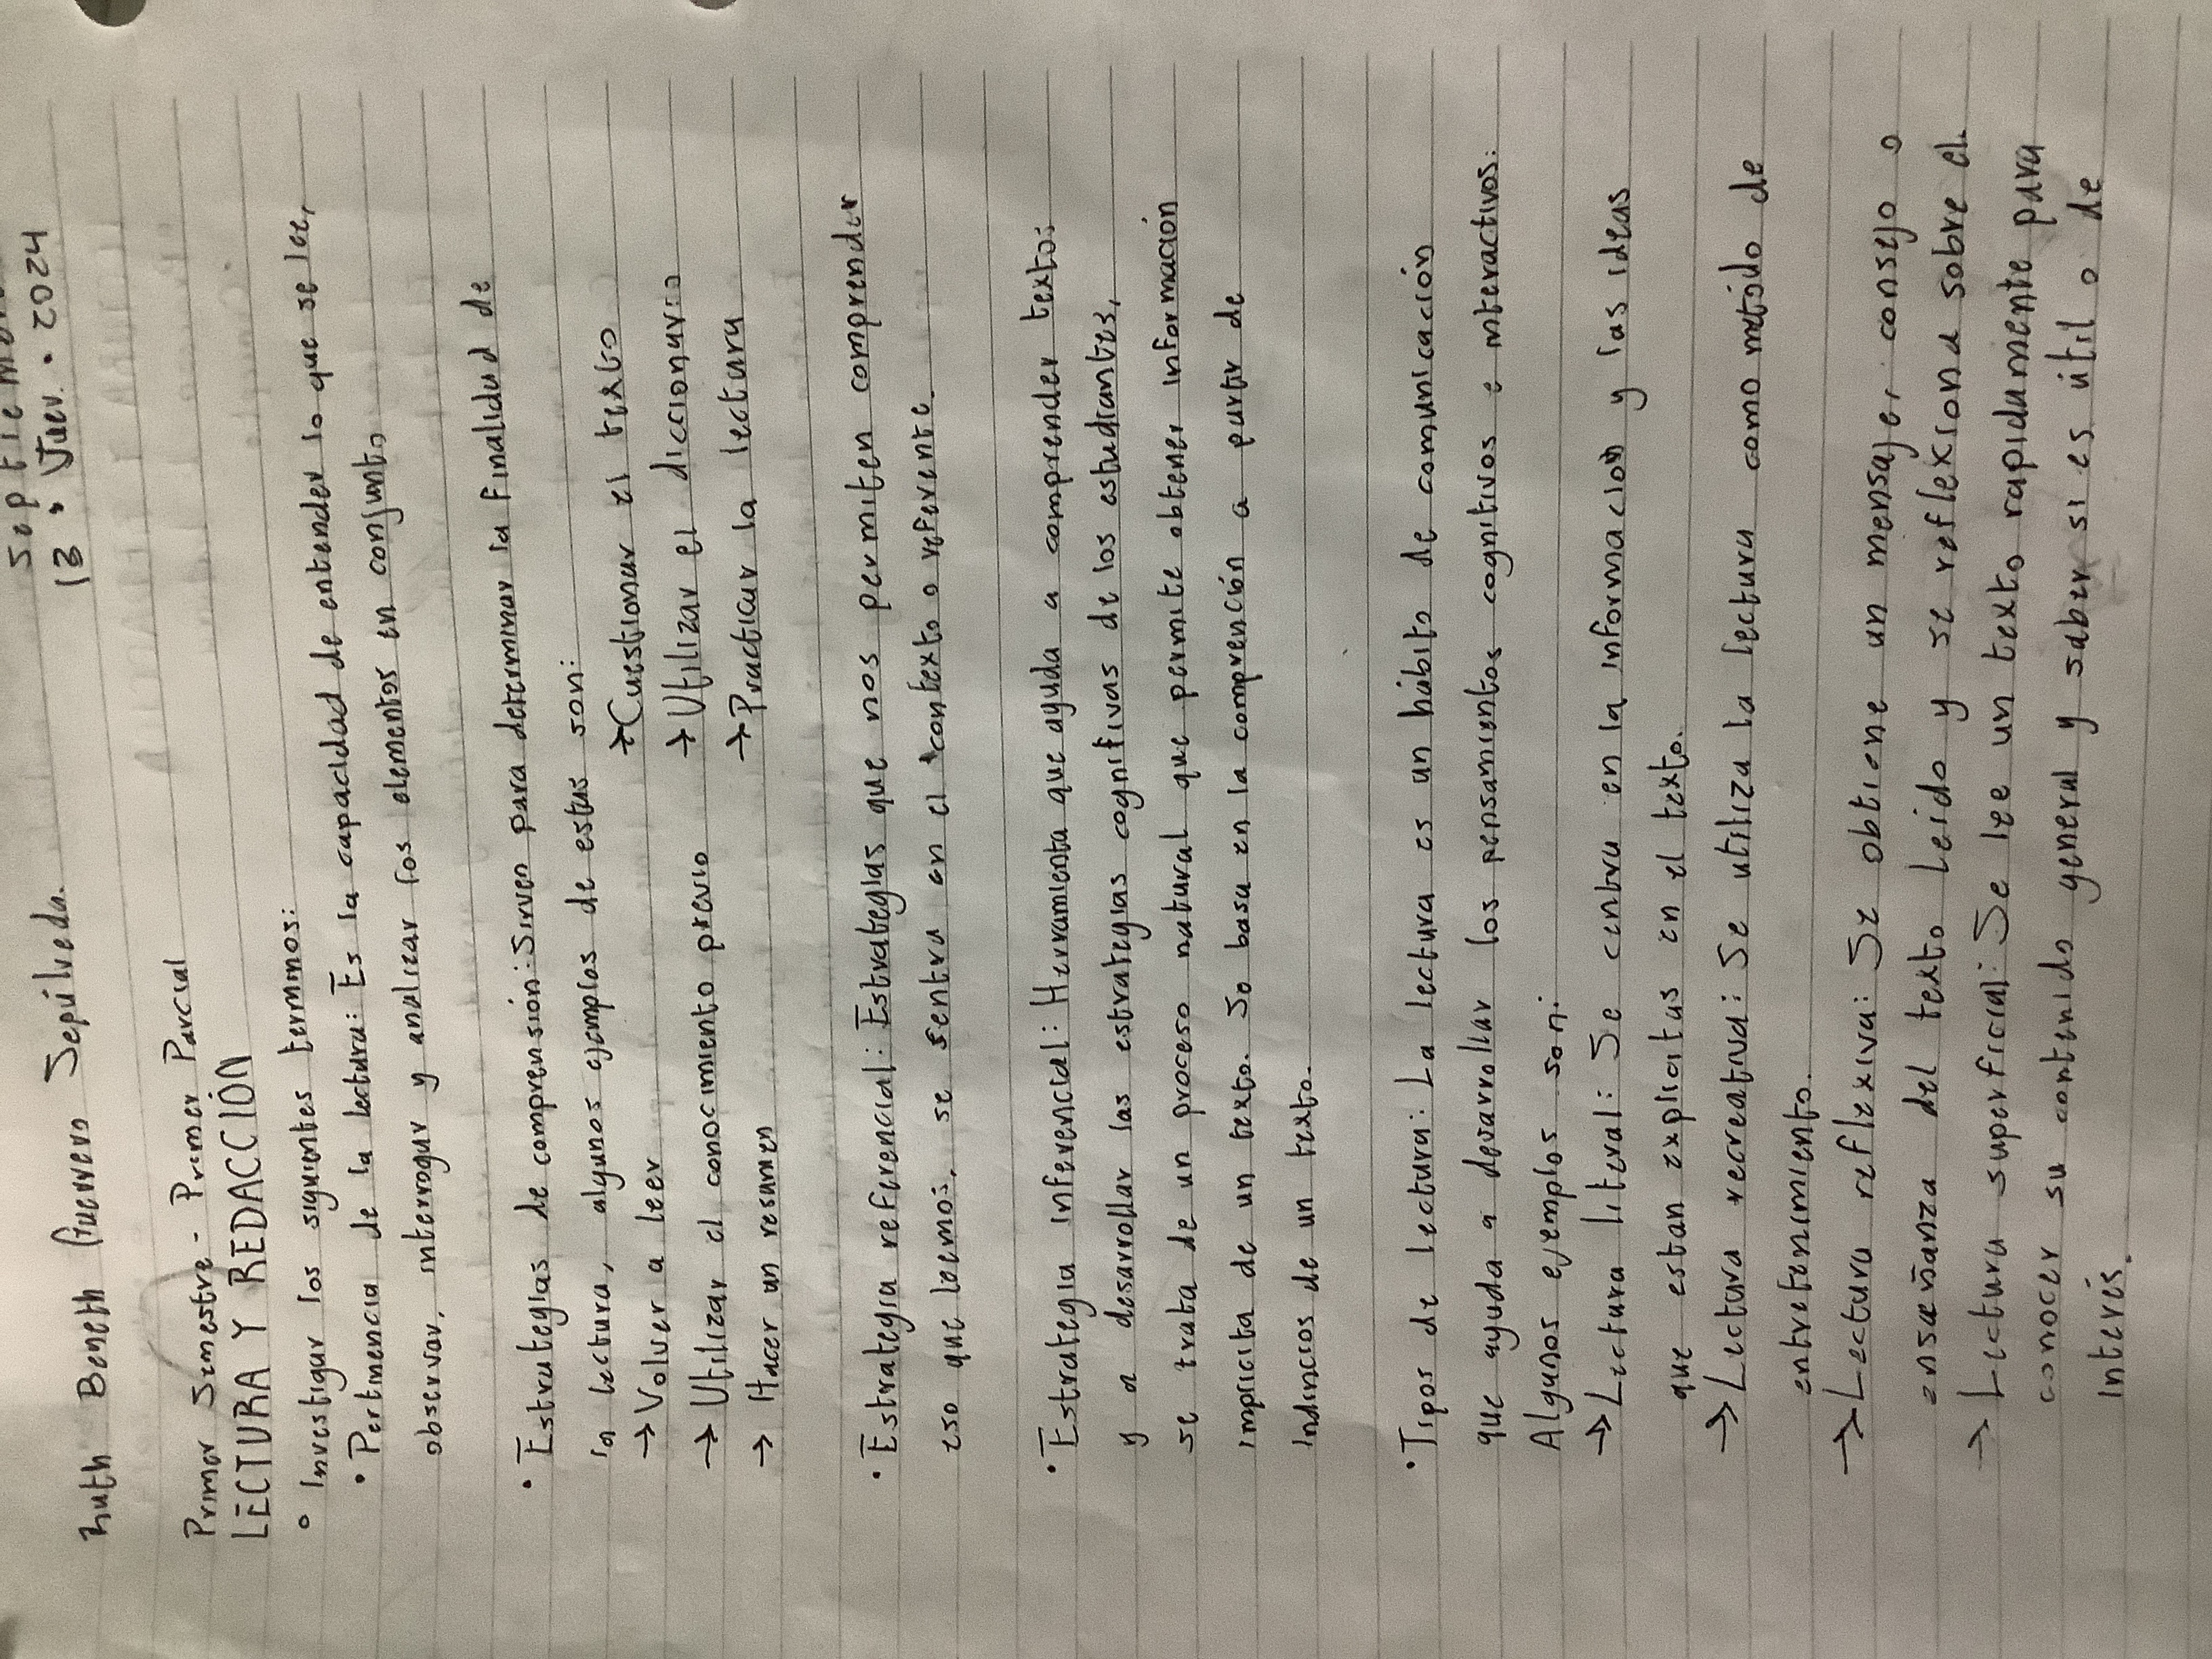 Septiembre
13 • Juev. • 2024
Ruth Beneth Guerrero Sepúlveda.
Primer Semestre - Primer Parcial
LECTURA Y REDACCIÓN
° Investigar los siguientes terminos:
• Pertinencia de la lectura: Es la capacidad de entender lo que se lee,
observar, interrogar y analizar los elementos en conjunto
• Estrategias de comprensión: Sirven para determinar la finalidad de
la lectura, algunos ejemplos de estas son:
→ Volver a leer → Cuestionar el texto
→ Utilizar el conocimiento previo → Utilizar el diccionario
→ Hacer un resumen → Practicar la lectura
• Estrategia referencial: Estrategias que nos permiten comprender
eso que leemos, se sentra en el contexto o referente.
• Estrategia inferencial: Herramienta que ayuda a comprender textos
y a desarrollar las estrategias cognitivas de los estudiantes,
se trata de un proceso natural que permite obtener información
implicita de un texto. Se basa en la comprención a partir de
indincios de un texto.
• Tipos de lectura: La lectura es un hábito de comunicación
que ayuda a desarrollar los pensamientos cognitivos e interactivos.
Algunos ejemplos son:
→ Lectura literal: Se centra en la información y las ideas
que estan explicitas en el texto.
→ Lectura recreativa: Se utiliza la lectura como metódo de
entretenimiento.
→ Lectura reflexiva: Se obtiene un mensaje, consejo o
enseñanza del texto leido y se reflexiona sobre el.
→ Lectura superficial: Se lee un texto rapidamente para
conocer su contenido general y saber si es útil o de
interés.